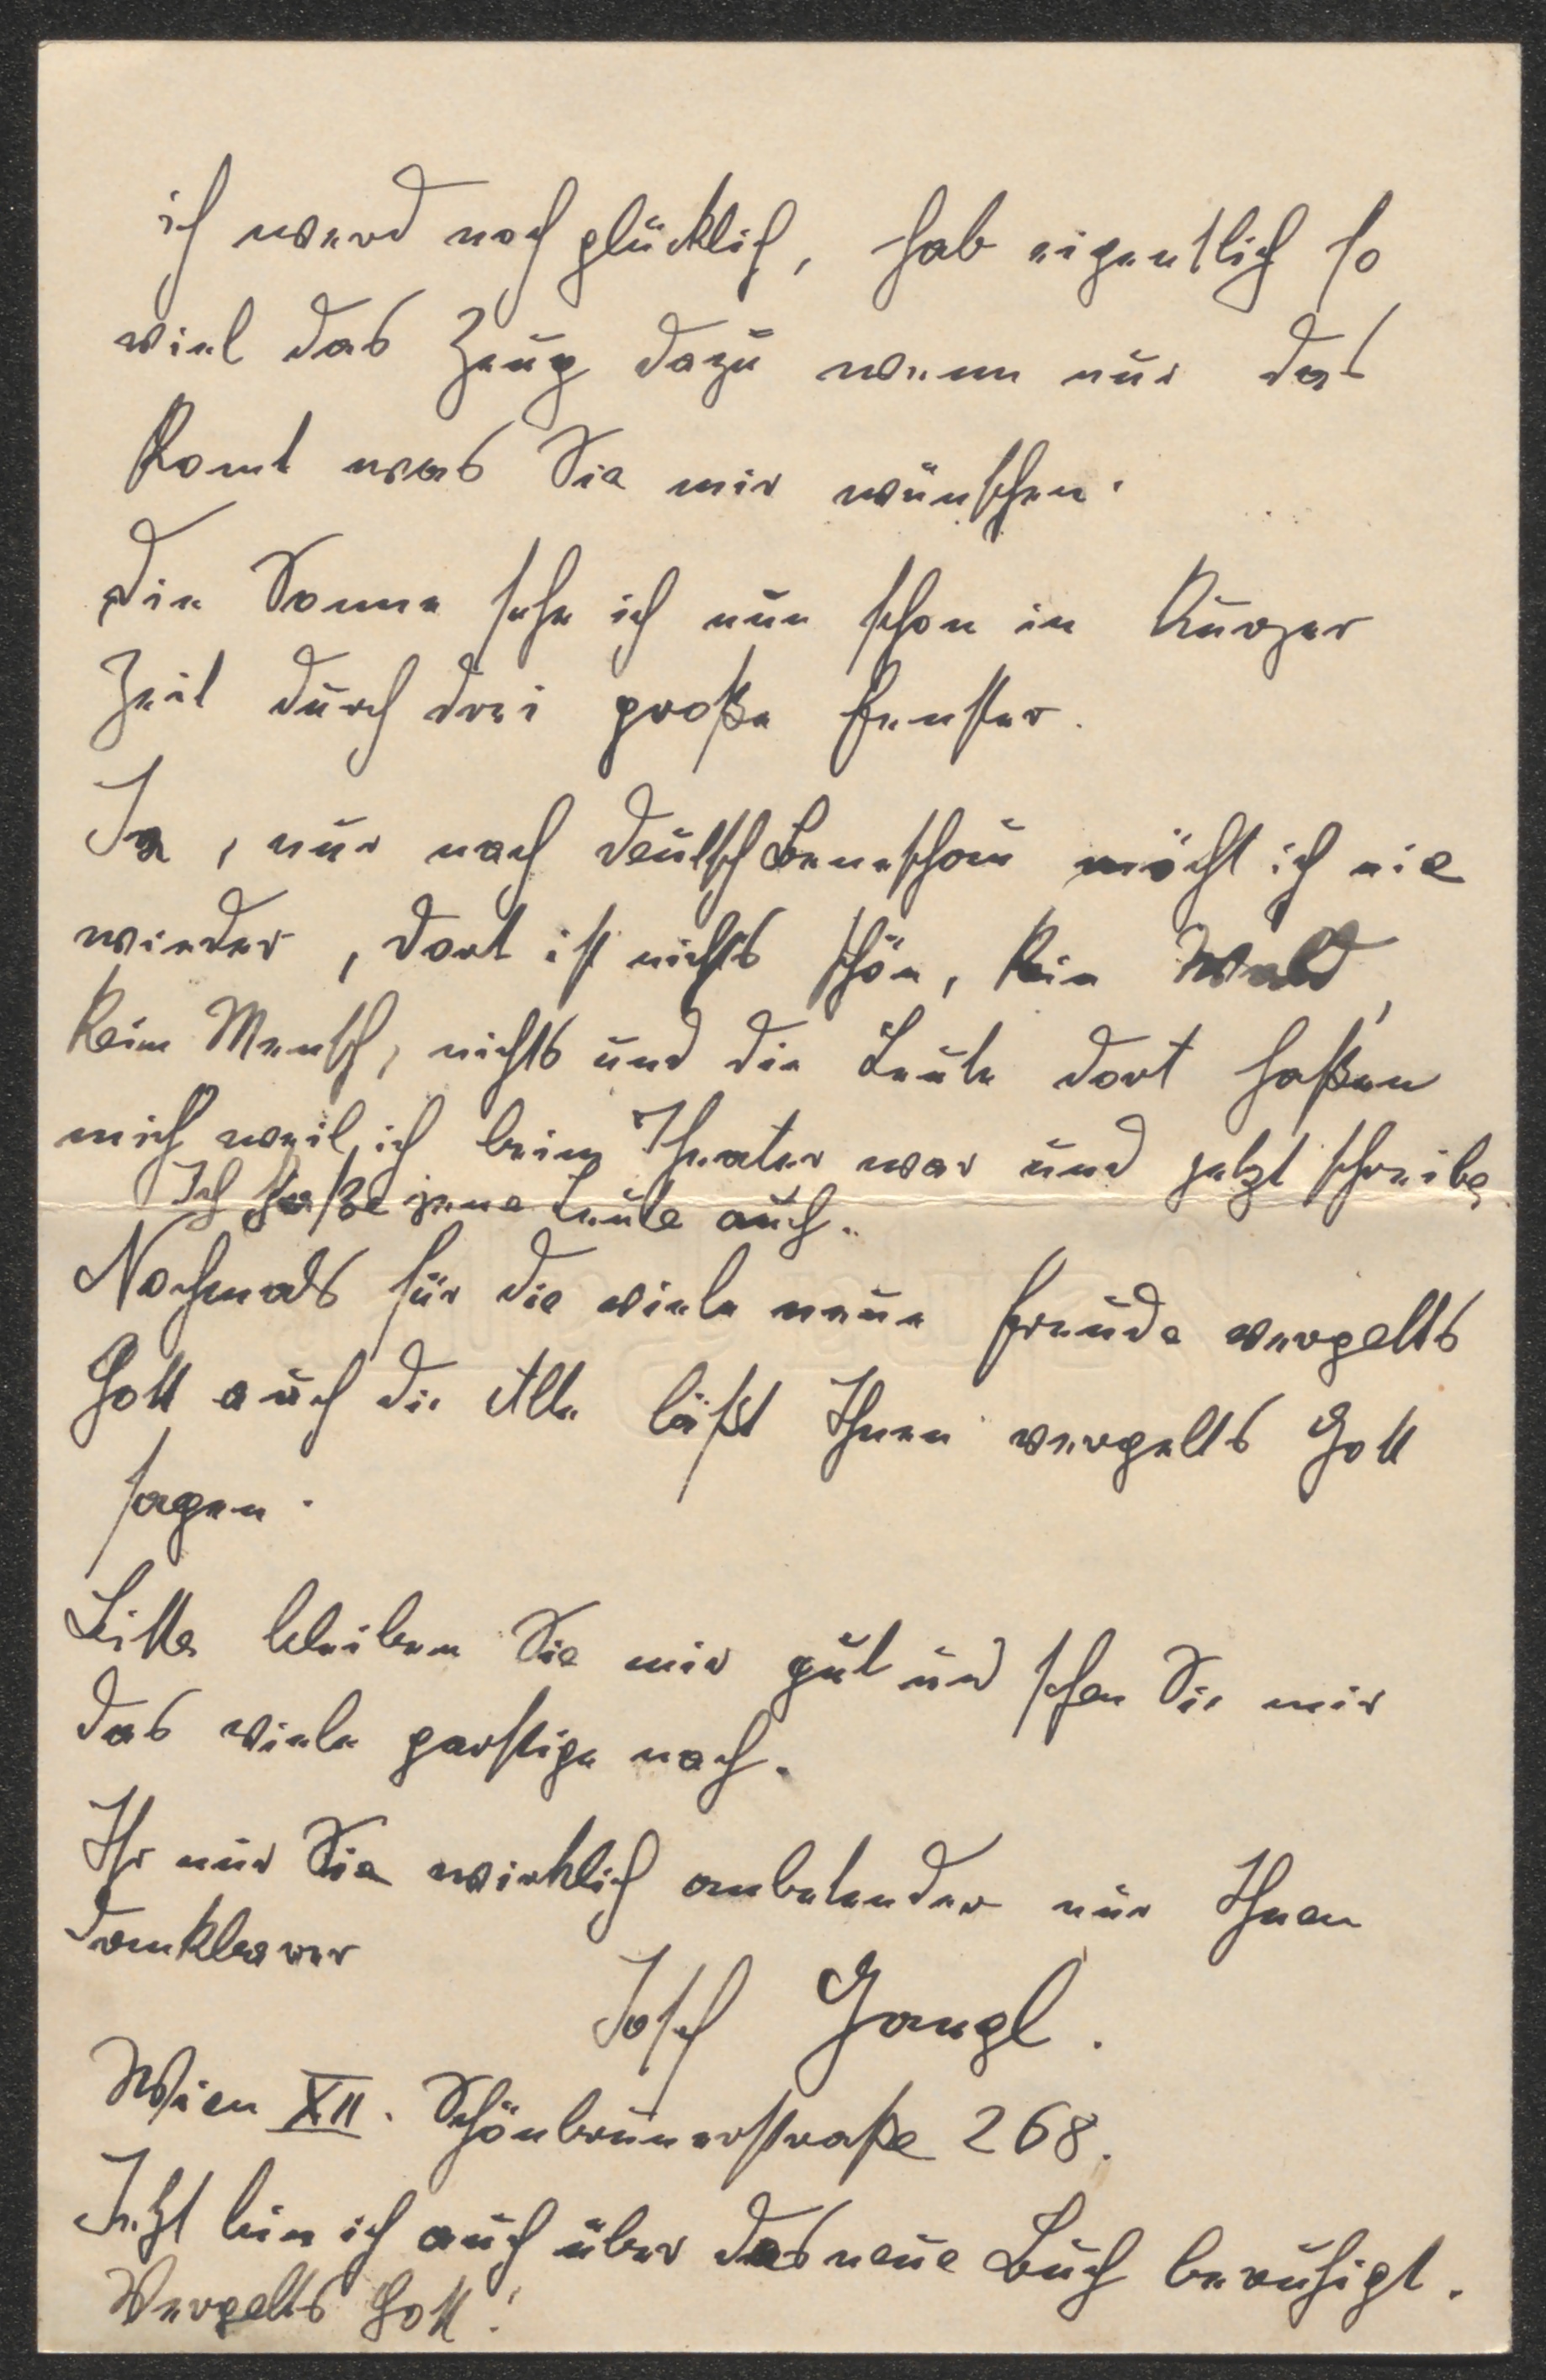 ich werd noch glücklich, hab eigentlich so
viel das Zeug dazu wenn nur das
komt was Sie mir wünschen.
Die Sonne sehe ich nun schon in kurzer
Zeit durch drei große Fenster.
Ja, nur nach deutsch Beneschau möcht ich nie
wieder, dort ist nichts schön, kein Wald,
kein Mensch, nichts und die Leute dort haßen
mich weil ich beim Theater war und jetzt schreibe,
Ich haße jene Leute auch.
Nochmals für die viele neue Freude vergelts
Gott auch die Alte läßt Ihnen vergelts Gott
sagen.
Bitte bleiben Sie mir gut und sehen Sie mir
das viele garstige nach.
Ihr nur Sie wirklich anbetender nur Ihnen
dankbarer
Josef Gangl.
Wien XII. Schönbrunnerstraße 268.
Jetzt bin ich auch über das neue Buch beruhigt.
Vergelts Gott!